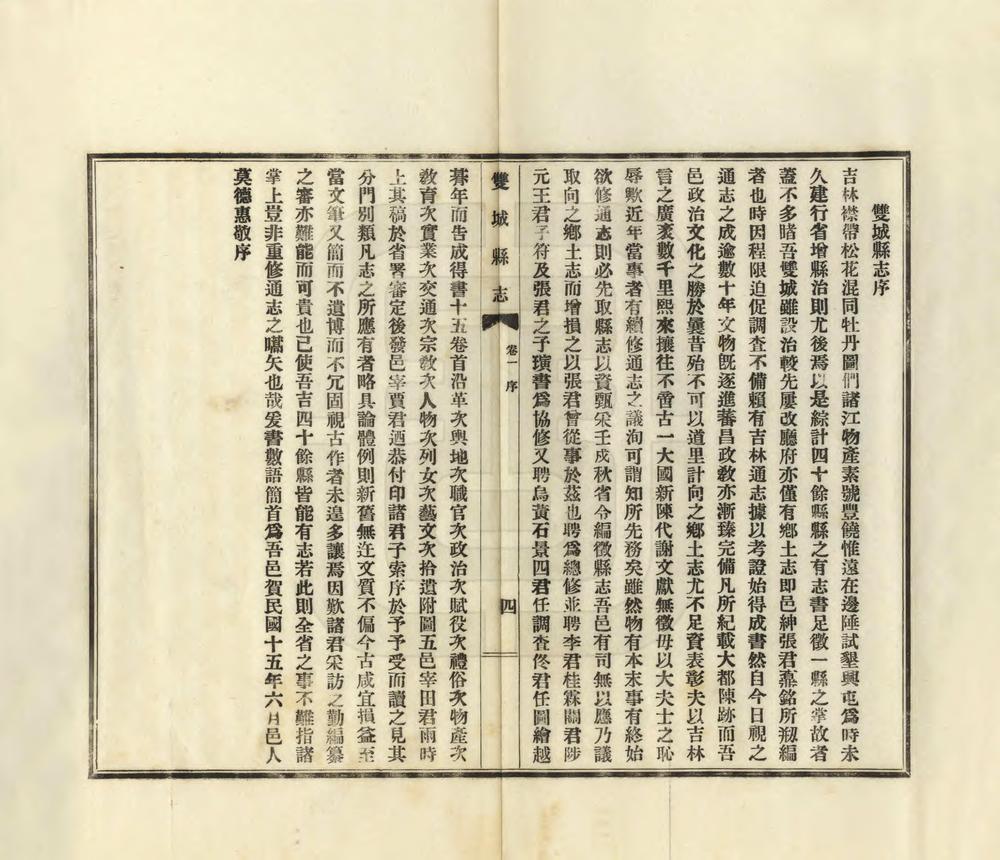 雙城縣志序
吉林襟帶松花混同牡丹圖們諸江物產素號豐饒惟遠在邊陲試墾興屯爲時未
久建行省增縣治則尤後焉以是綜計四十餘縣縣之有志書足徵一縣之掌故者
蓋不多睹吾雙城雖設治較先屢改廳府亦僅有鄉土志即邑紳張君鼐銘所剏編
者也時因程限迫促調查不備賴有吉林通志據以考證始得成書然自今日視之
通志之成逾數十年文物旣逐進蕃昌政敎亦漸臻完備凡所紀載大都陳跡而吾
邑政治文化之勝於曩昔殆不可以道里計向之鄉土志尤不足資表彰夫以吉林
言之廣袤數千里熙來攘往不啻古一大國新陳代謝文獻無徵毋以大夫士之恥
辱歟近年當事者有續修通志之議洵可謂知所先務矣雖然物有本末事有終始
欲修通志則必先取縣志以資甄采壬戌秋省令編徵縣志吾邑有司無以應乃議
取向之鄉土志而增損之以張君曾從事於茲也聘爲總修並聘李君桂霖關君陟
元王君子符及張君之子璜書爲協修又聘烏黃石景四君任調查佟君任圖繪越
雙城縣志 卷一 序 四
朞年而告成得書十五卷首沿革次輿地次職官次政治次賦役次禮俗次物產次
敎育次實業次交通次宗敎次人物次列女次藝文次拾遺附圖五邑宰田君雨時
上其稿於省署審定後發邑宰賈君迺恭付印諸君子索序於予予受而讀之見其
分門別類凡志之所應有者略具論體例則新舊無迕文質不偏今古咸宜損益至
當文筆又簡而不遺博而不冗固視古作者未遑多讓焉因歎諸君采訪之勤編纂
之審亦難能而可貴也已使吾吉四十餘縣皆能有志若此則全省之事不難指諸
掌上豈非重修通志之嚆矢也哉爰書數語簡首爲吾邑賀民國十五年六月邑人
莫德惠敬序